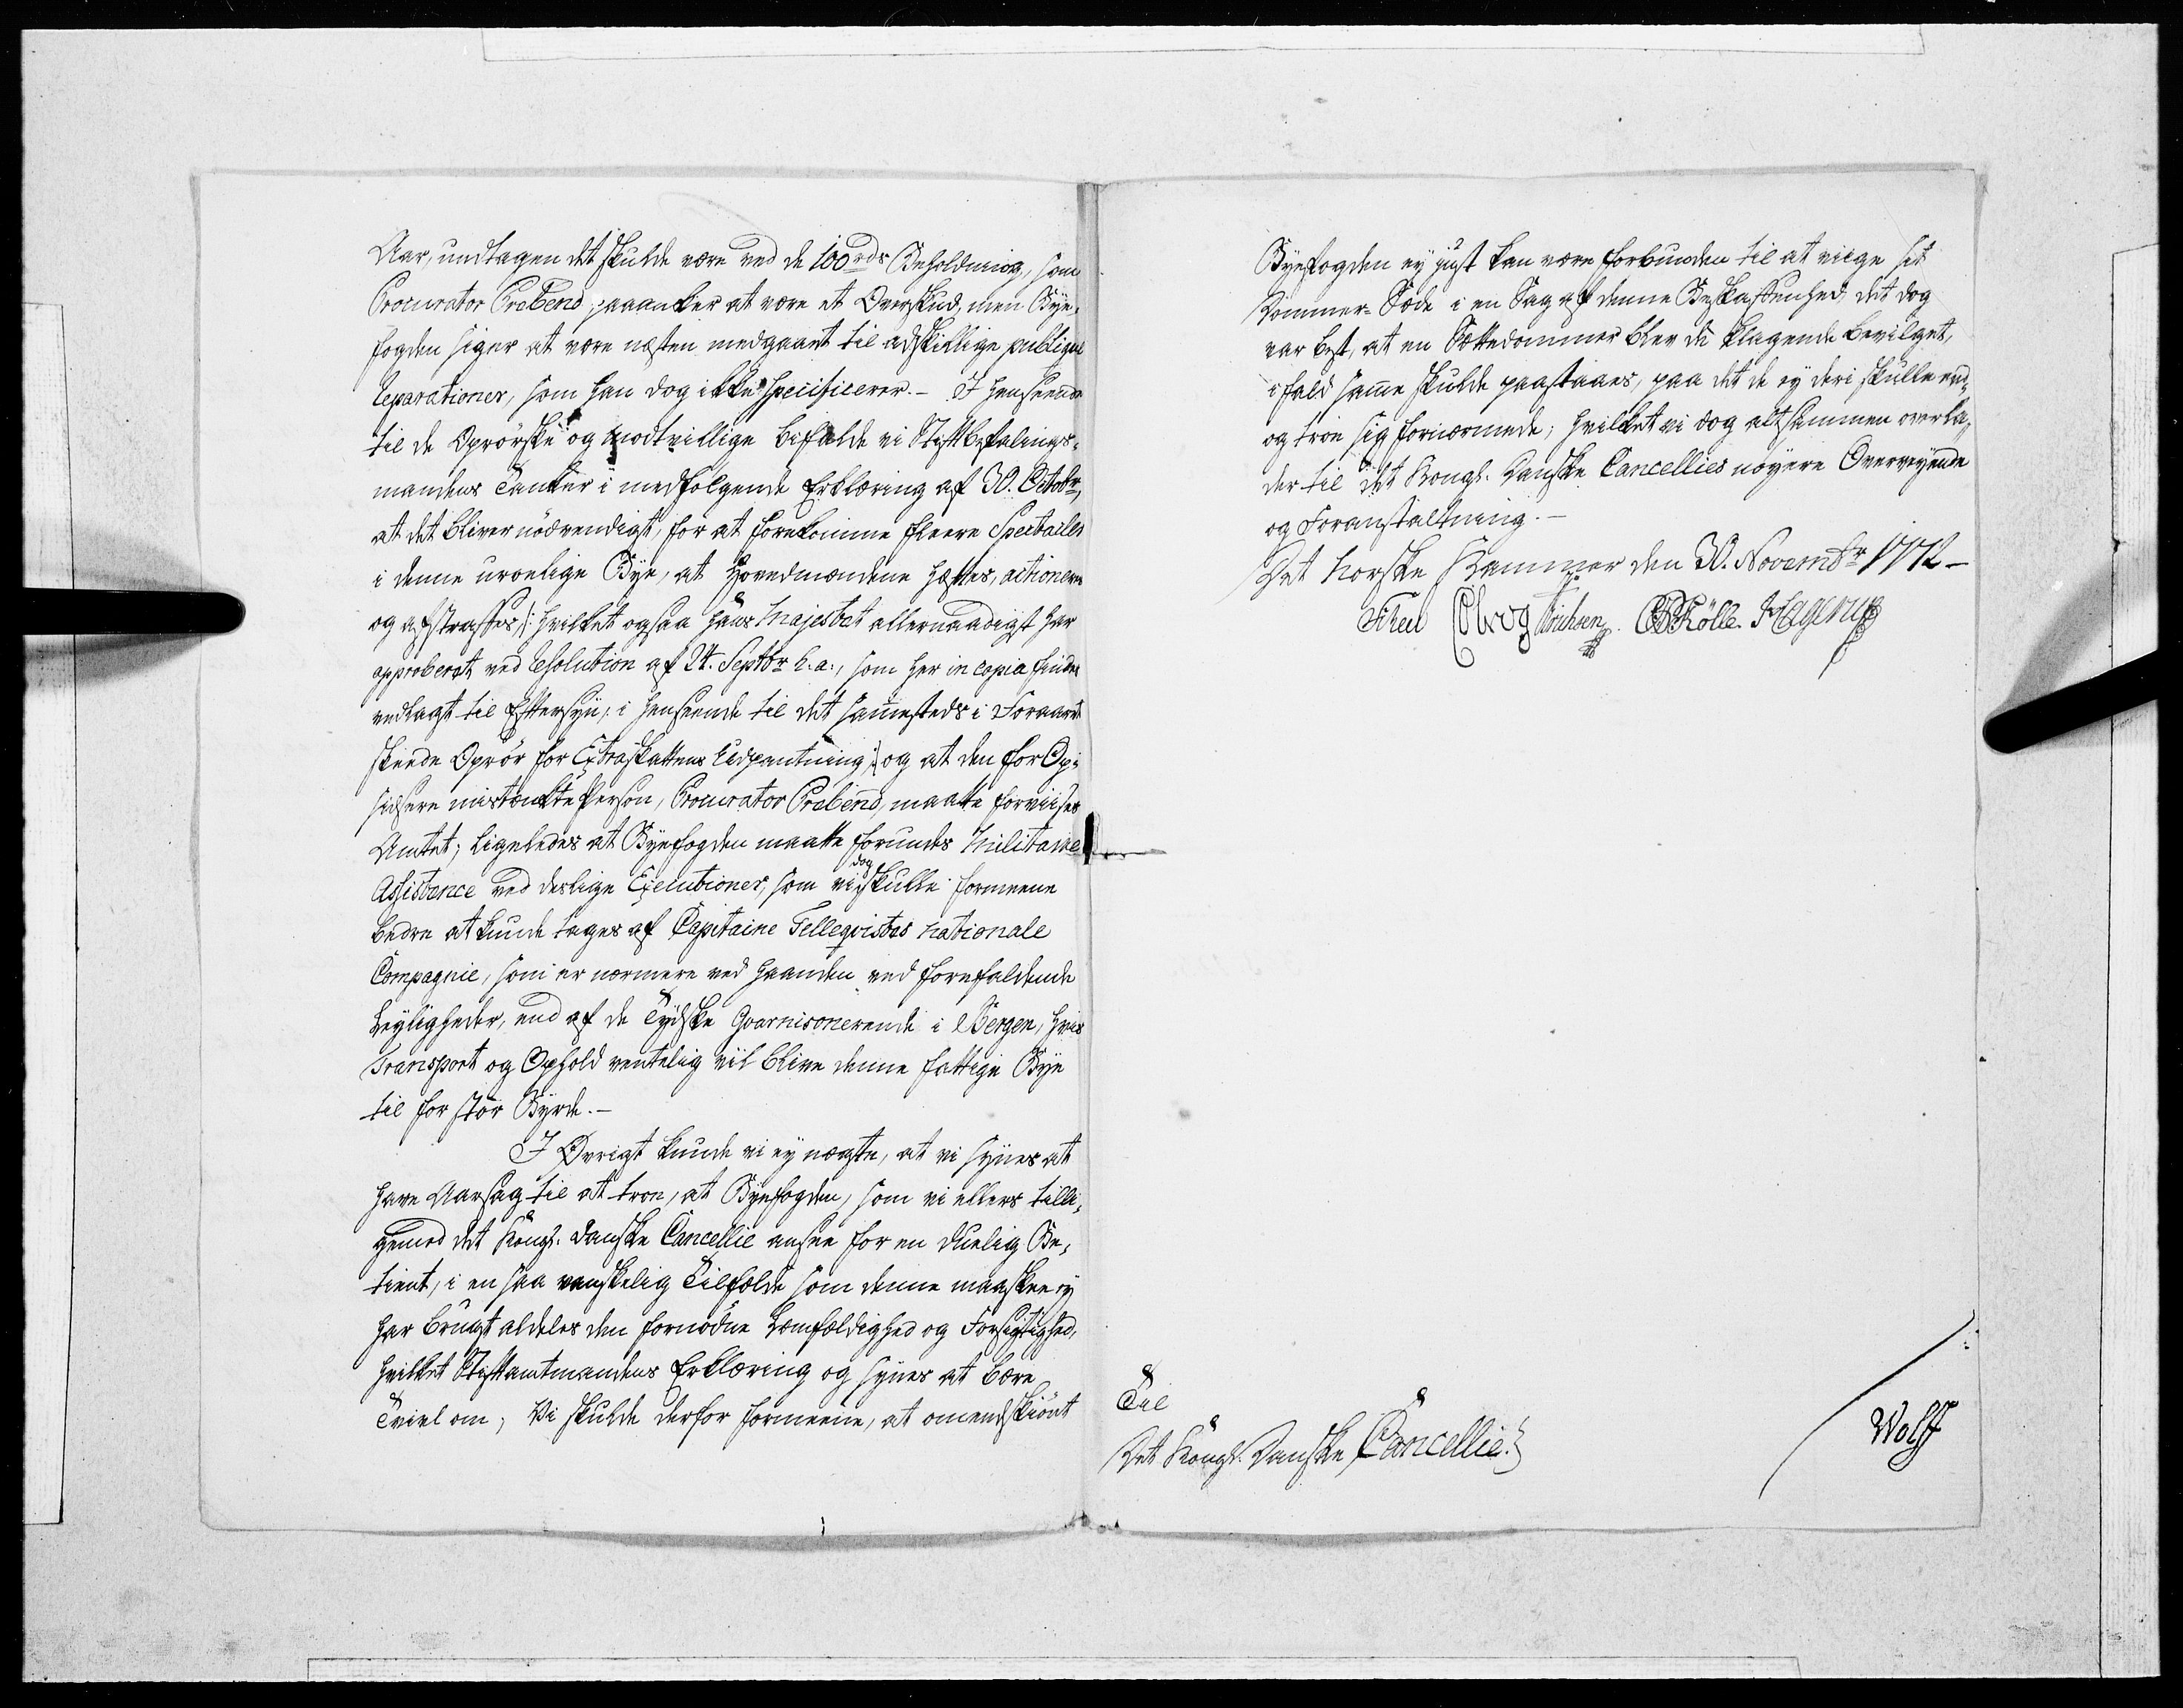 Aar, undtagen det skulde være ved de 100 rdr Beholdning, som
Procurator Prebend paaanker at være et Overskud, men Bye-
fogden siger at være næsten medgaaet til adskillige publique
Reparationer, som han dog ikke specificerer. - I Henseende
til de Oprørske og Modtvillige bifalde vi Stiftbefalings-
mandens Tanker i medfølgende Erklæring af 30. Octobr,
at det bliver nödvendigt, for at forekomme fleere Spectacler
i denne uroelige Bye, at Hovedmændene hæftes, actioneres
og afstraffes, /: hvilket ogsaa Hans Majestet allernaadigst har
approberet ved Resolution af 24. Septbr h: a:, som her in copia findes
vedlagt til Eftersyn, i Henseende til det sammesteds i Foraaret
skeede Oprør for Extraskattens Udpantning :/ og at den for Op-
hidsere mistænkte Person, Procurator Prebend, maatte forviises
Amtet; ligeledes at Byefogden maatte forundes Militaire
Assistence ved deslige Executioner, som vi dog skulle formeene
bedre at kunde tages af Capitaine Tellequistes nationale
Compagnie, som er nærmere ved Haanden ved forefaldende
Leyligheder, end af de Tydske Guarnisonerende i Bergen, hvis
Transport og Ophold ventelig vil blive denne fattige Bye
til for stor Byrde. -
I Øvrigt kunde vi ey nægte, at vi synes at
have Aarsag til at troe, at Byefogden, som vi ellers tilli-
gemed det Kongl. Danske Cancellie ansee for en duelig Be-
tient, i en saa vanskelig Tilfælde som denne maaskee ey
har brugt aldeles den fornødne Lemfældighed og Forsigtighed,
hvilket Stiftamtmandens Erklæring og synes at bære
Tvivl om; Vi skulde derfor formeene, at omendskiönt
Byefogden ey just kan være forbunden til at viige sit
Dommer-Sæde i en Sag af denne Beskaffenhed, det dog
var best, at en Sættedommer blev de klagende bevilget,
ifald samme skulde paastaaes, paa det de ey deri skulle end
og troe sig fornærmede; hvilket vi dog altsammen overla-
der til det Kongl. Danske Cancellies nöyere Overveyende
og Foranstaltning. -
Det Norske Kammer den 30. Novembr 1772 -
Scheel Erichsen Hagerup
Til
Det Kongl. Danske Cancellie.
Wolff